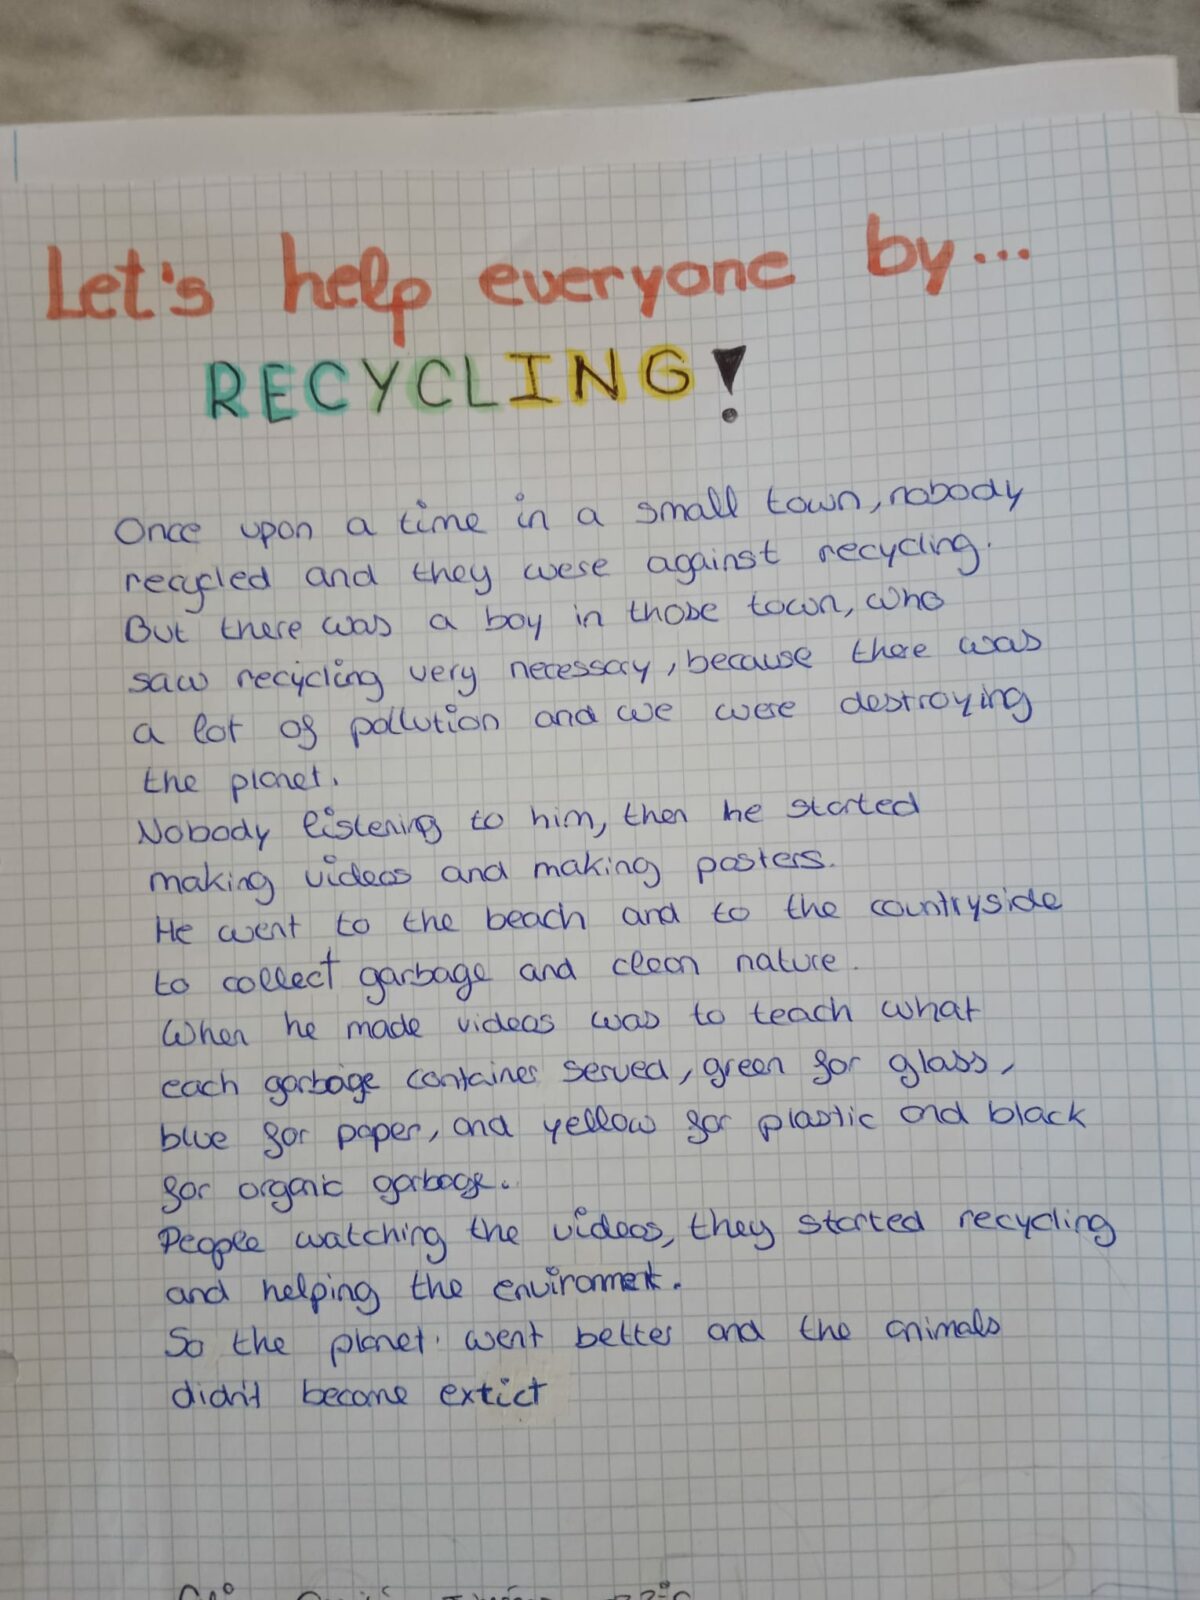 Let's help everyone by...
RECYCLING!
Once upon a time in a small town, nobody
recycled and they were against recycling.
But there was a boy in those town, who
saw recycling very necessary, because there was
a lot of pollution and we were destroying
the planet.
Nobody listening to him, then he started
making videos and making posters.
He went to the beach and to the countryside
to collect garbage and clean nature.
When he made videos was to teach what
each garbage container served, green for glass,
blue for paper, and yellow for plastic and black
for organic garbage.
People watching the videos, they started recycling
and helping the environment.
So the planet went better and the animals
didn't become extict